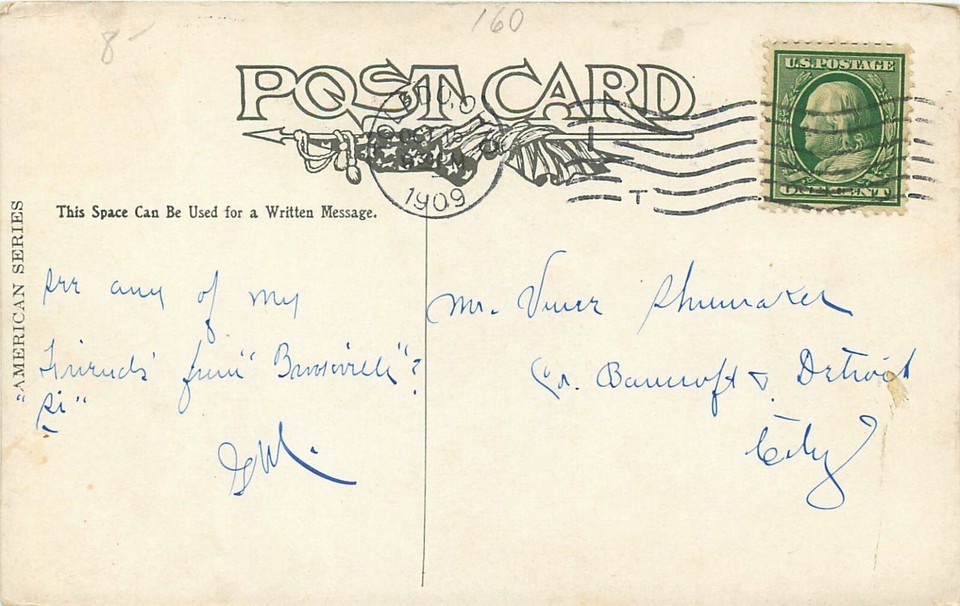 160
8-
POST CARD
1909
T
U.S. POSTAGE
ONE CENT
This Space Can Be Used for a Written Message.
"AMERICAN SERIES
see any of my
Friends from "
Mr. Shumaker
Cor. Bancroft & Detroit
City